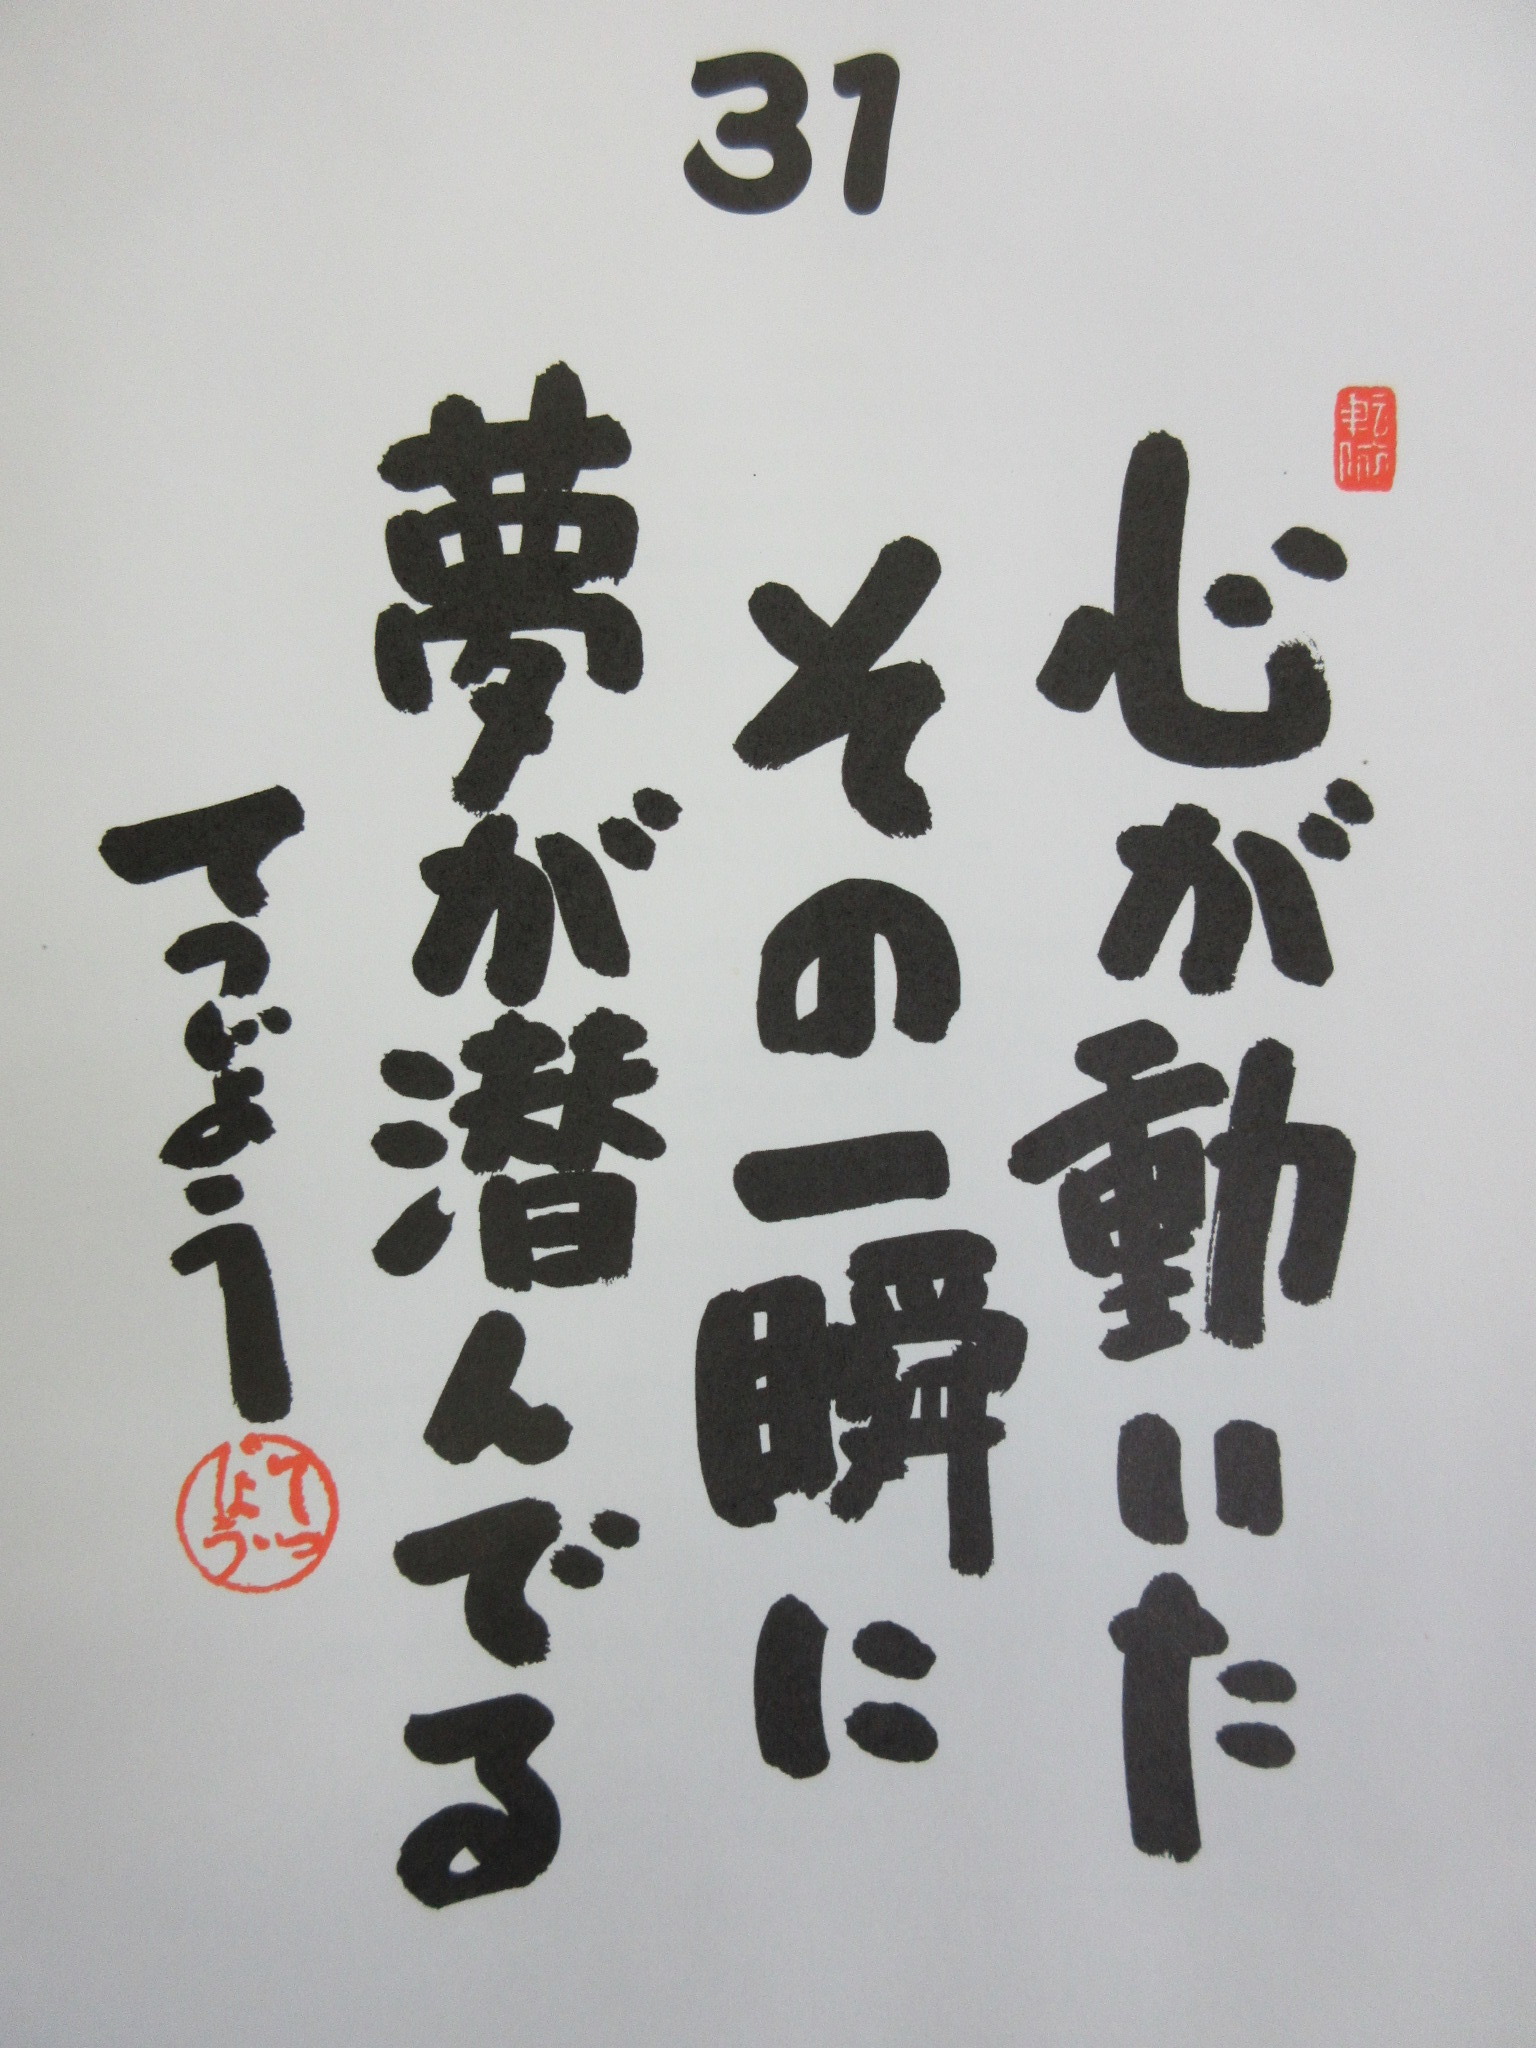 31
心が動いた
その一瞬に
夢が潜んでる
てつじょう
てつじょう